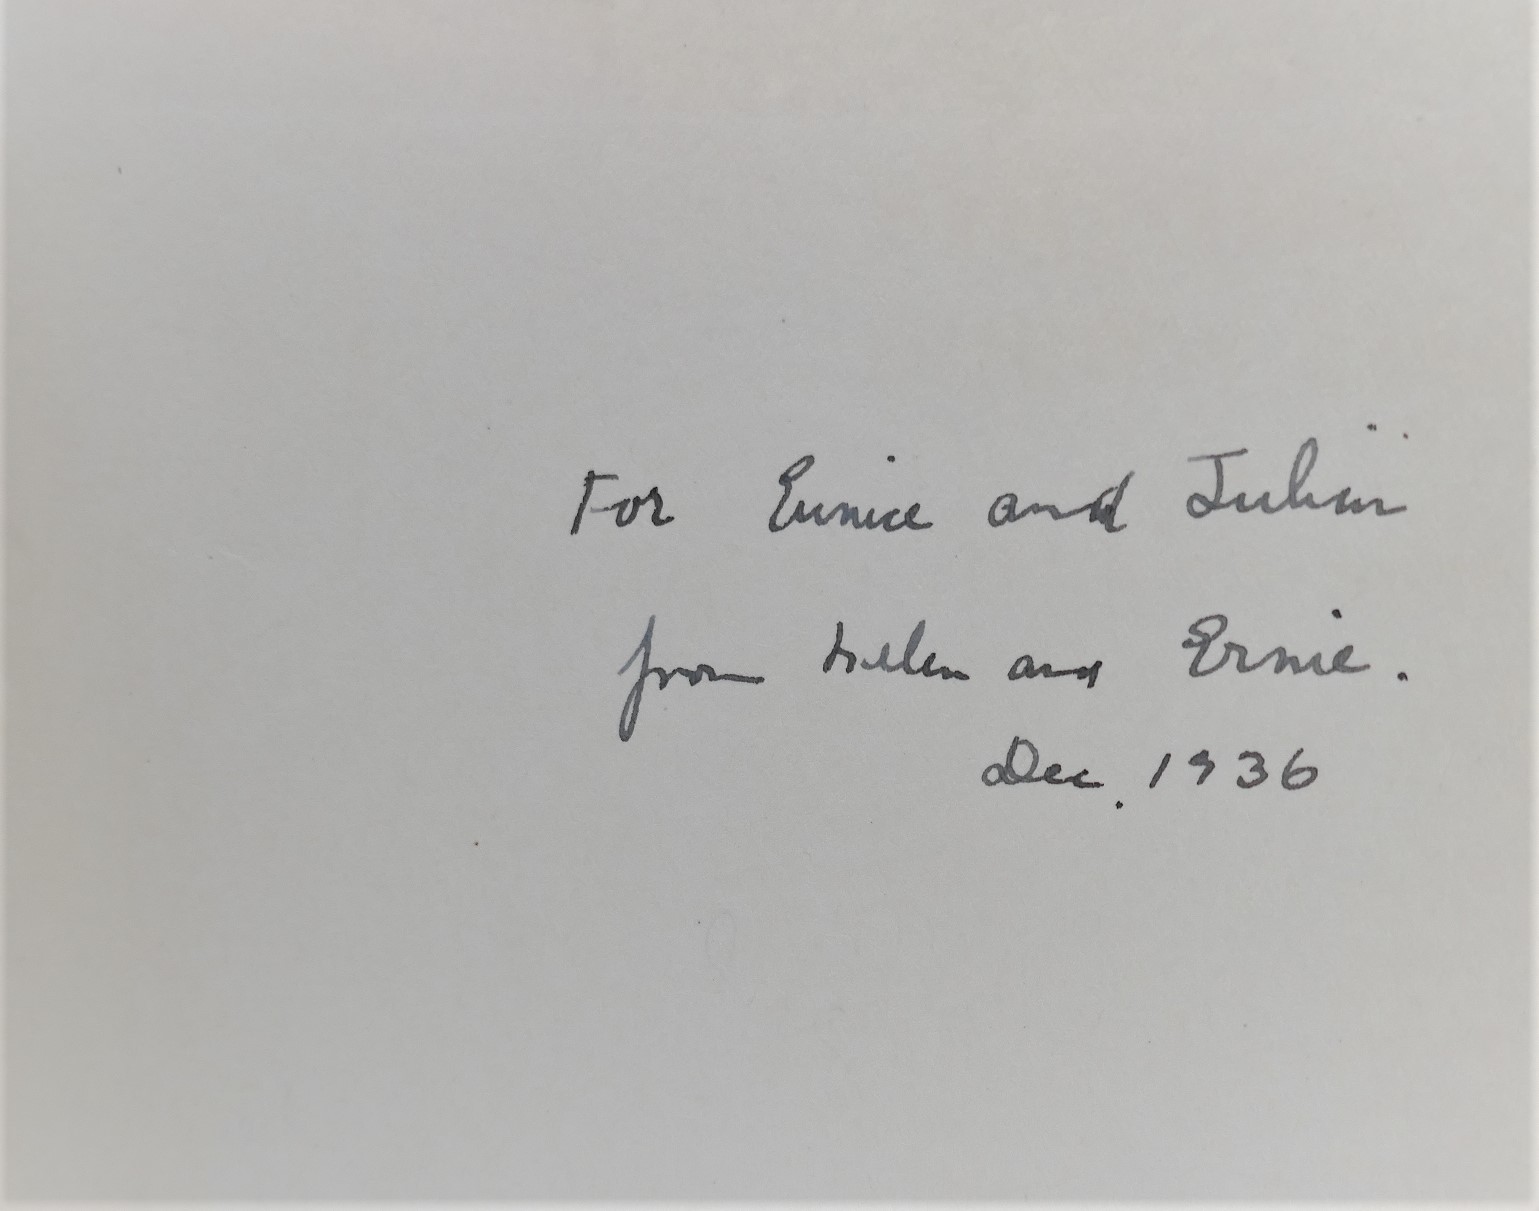 For Eunice and Julian
from Helen and Ernie.
Dec. 1936